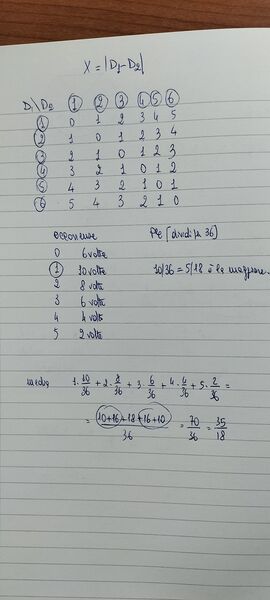 X = |D1-D2|
D1\D2 1 2 3 4 5 6
1 0 1 2 3 4 5
2 1 0 1 2 3 4
3 2 1 0 1 2 3
4 3 2 1 0 1 2
5 4 3 2 1 0 1
6 5 4 3 2 1 0
occorrenze
0 6 volte
1 10 volte
2 8 volte
3 6 volte
4 4 volte
5 2 volte
(dividi per 36)
10/36 = 5/18 è la maggiore
media 1·10/36 + 2·8/36 + 3·6/36 + 4·4/36 + 5·2/36 =
= 10+16+18+16+10/36 = 70/36 = 35/18